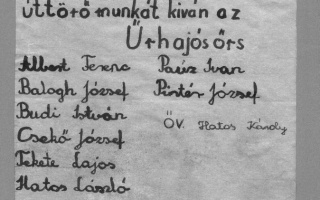 úttörő munkát kíván az
Űrhajósörs
Albert Ferenc
Balogh József
Budi István
Csekő József
Fekete Lajos
Hatos László
Paéz Ivan
Pintér József
ÖV. Hatos Károly